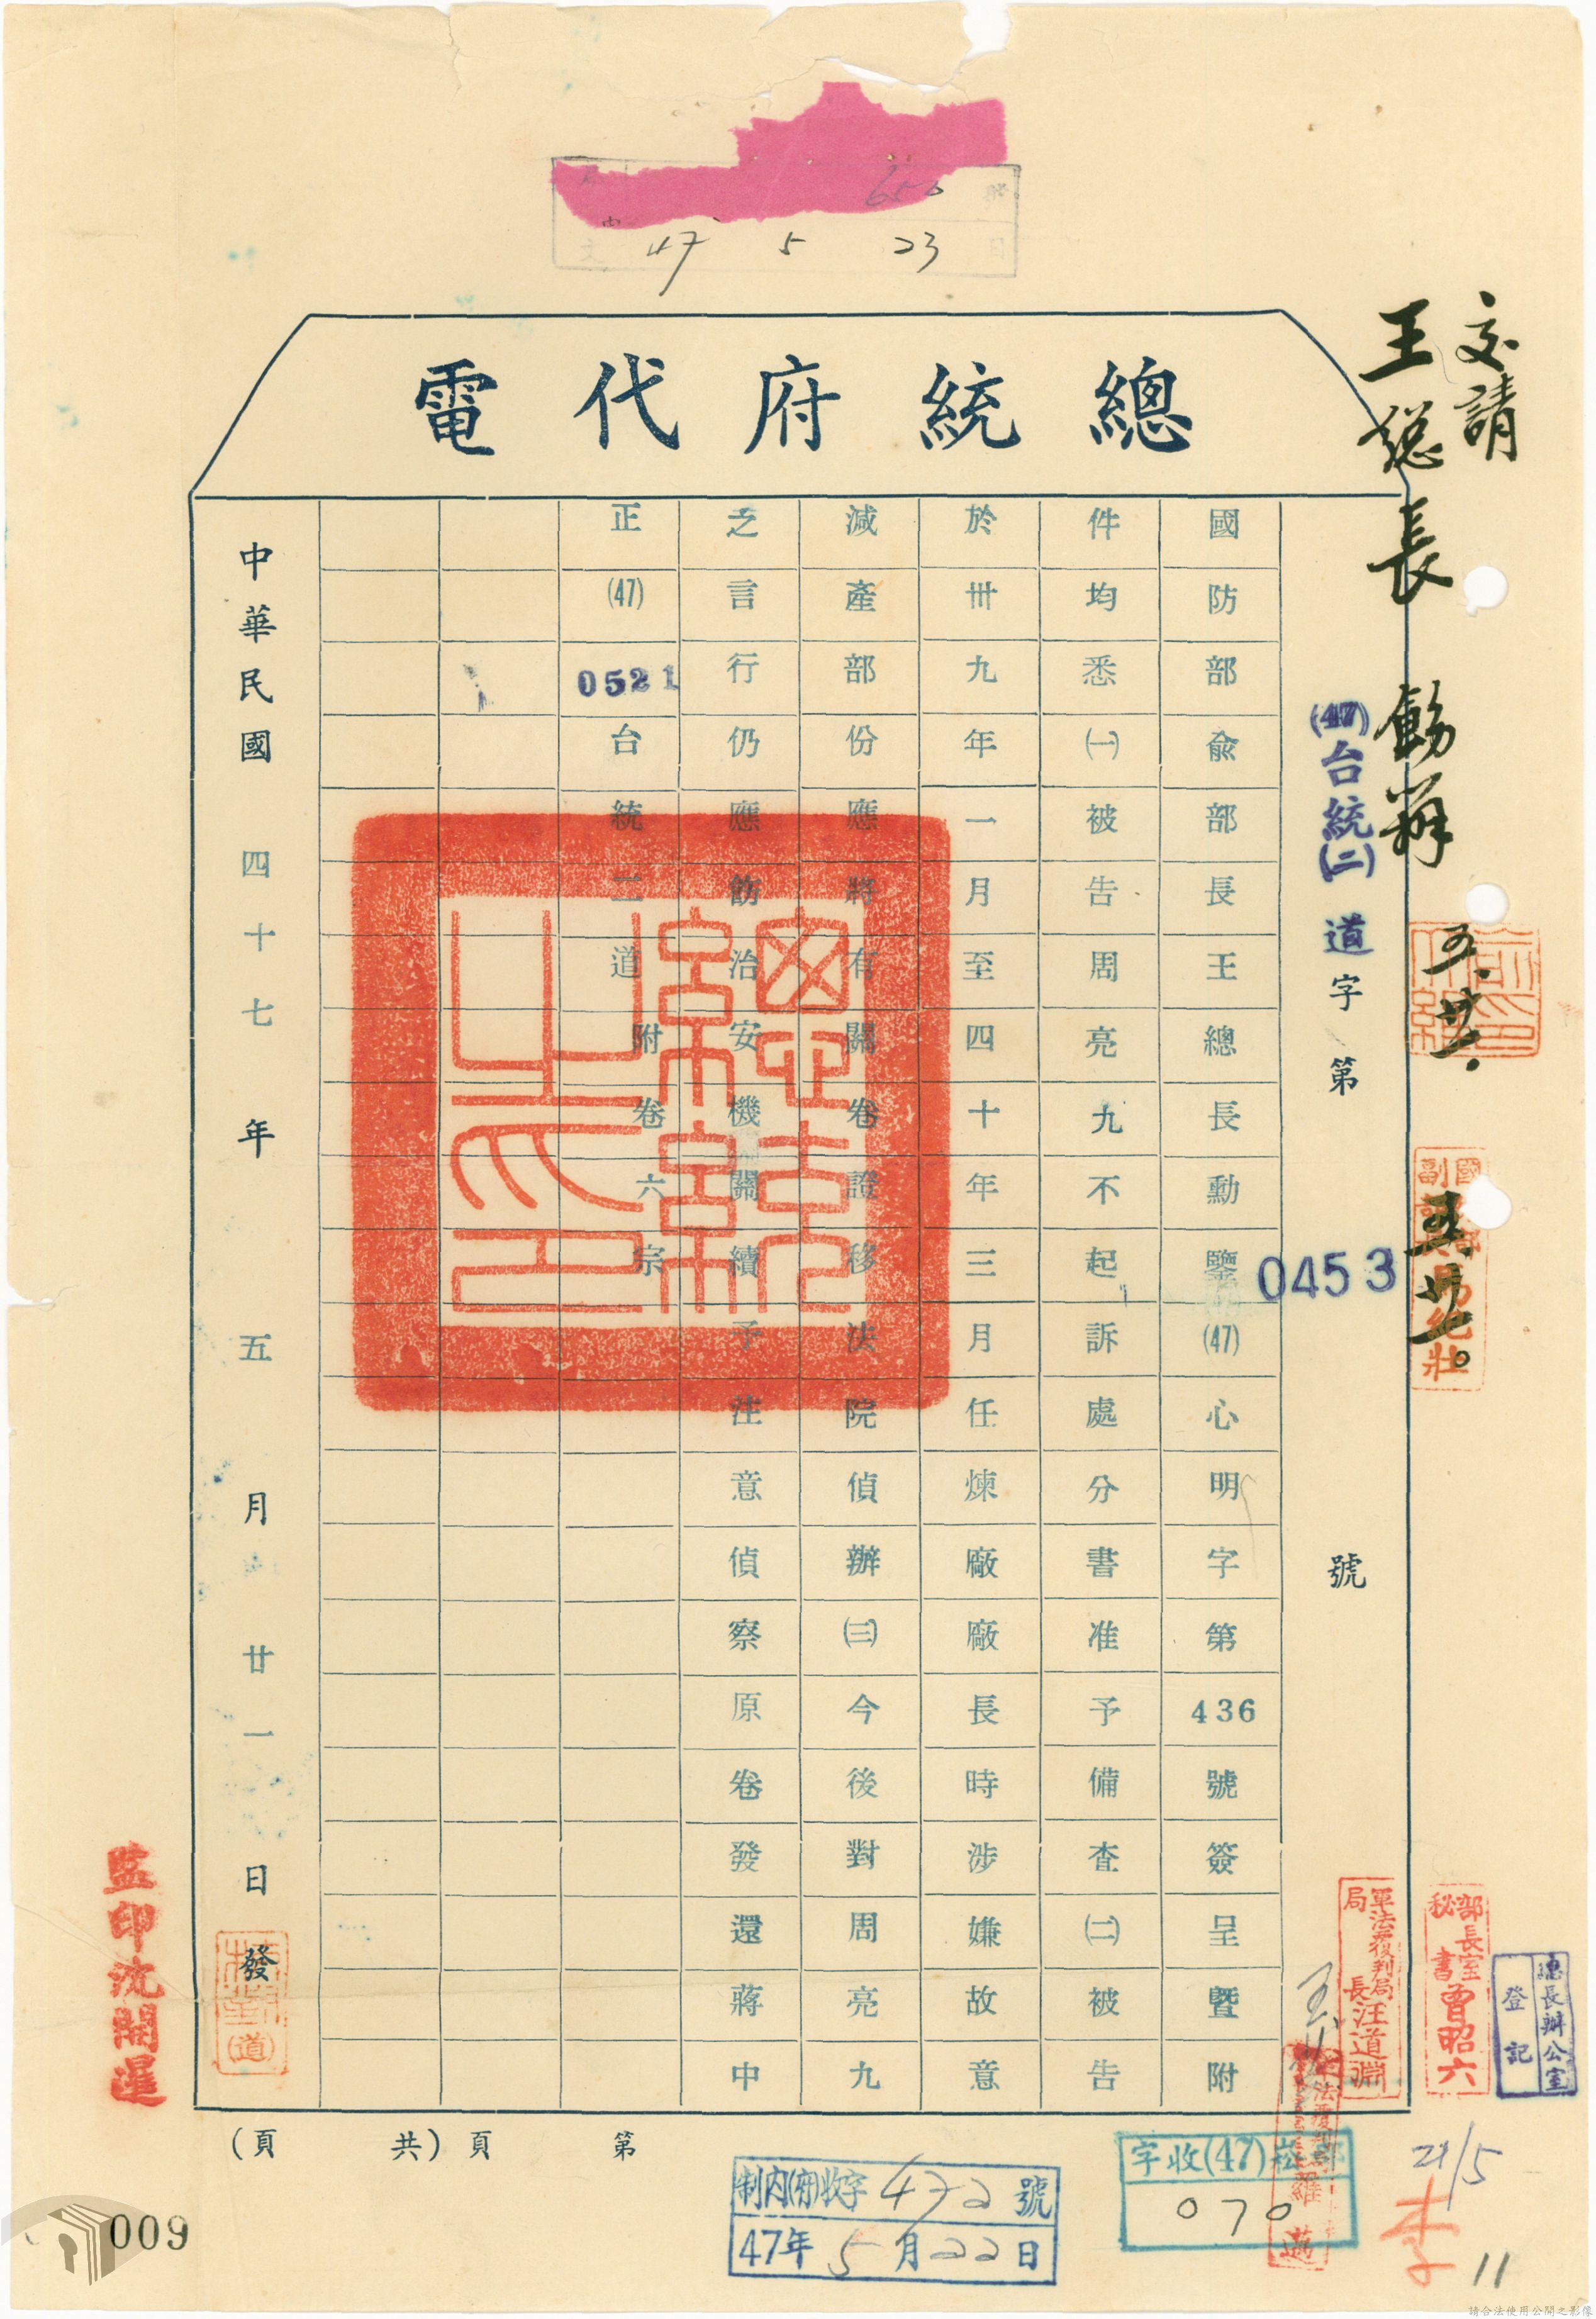 656
47 5 23
總統府代電
交請
王總長 飭辦
五、廿一、
五、廿一。
(47)台統(二)道字第0453號
國防部俞部長王總長勳鑒(47)心明字第436號簽呈暨附
件均悉㈠被告周亮九不起訴處分書准予備查㈡被告
於卅九年一月至四十年三月任煉廠廠長時涉嫌故意
減產部份應將有關卷證移法院偵辦㈢今後對周亮九
之言行仍應飭治安機關續予注意偵察原卷發還蔣中
正(47)0521台統二道 附卷六宗
中華民國四十七年五月廿一日發
監印沈開暹
軍法覆判局局長汪道淵
部長室秘書曾昭六
總長辦公室登記
第 頁(共 頁)
制內(府)收字472號
47年5月22日
字收(47)崧
070
21/5
李
11
009
請合法使用公開之影像